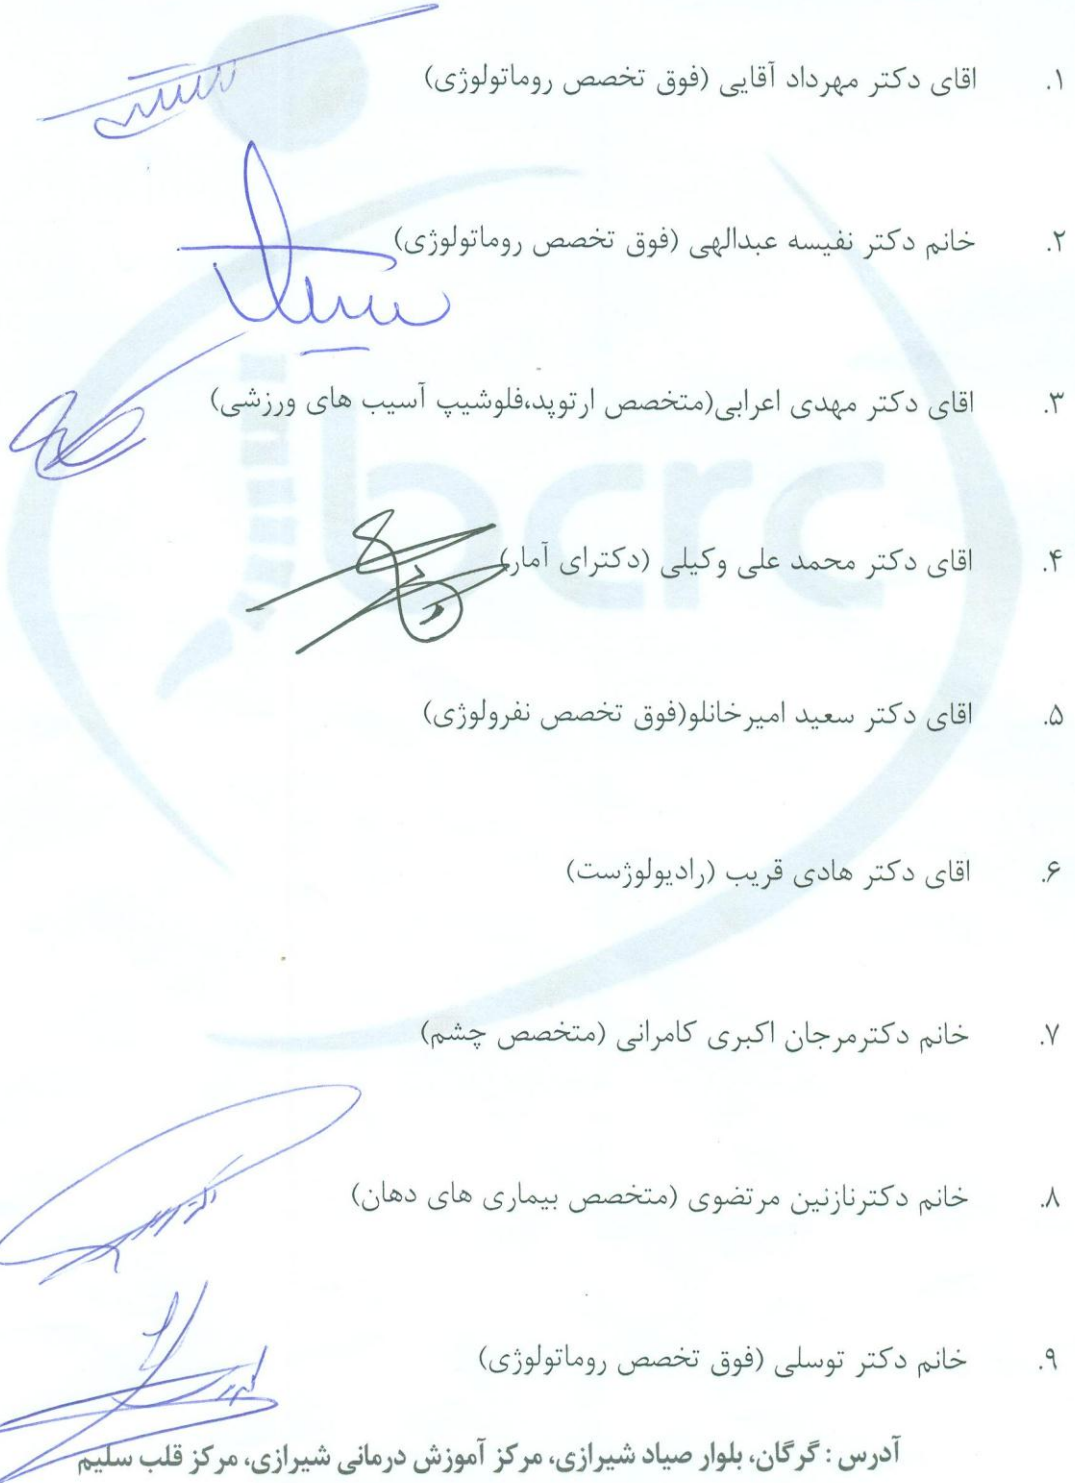 ۱. اقای دکتر مهرداد آقایی (فوق تخصص روماتولوژی)
۲. خانم دکتر نفیسه عبدالهی (فوق تخصص روماتولوژی)
۳. اقای دکتر مهدی اعرابی(متخصص ارتوپد،فلوشیپ آسیب های ورزشی)
۴. اقای دکتر محمد علی وکیلی (دکترای آمار)
۵. اقای دکتر سعید امیرخانلو(فوق تخصص نفرولوژی)
۶. اقای دکتر هادی قریب (رادیولوژست)
۷. خانم دکترمرجان اکبری کامرانی (متخصص چشم)
۸. خانم دکترنازنین مرتضوی (متخصص بیماری های دهان)
۹. خانم دکتر توسلی (فوق تخصص روماتولوژی)
آدرس : گرگان، بلوار صیاد شیرازی، مرکز آموزش درمانی شیرازی، مرکز قلب سلیم
bcrc